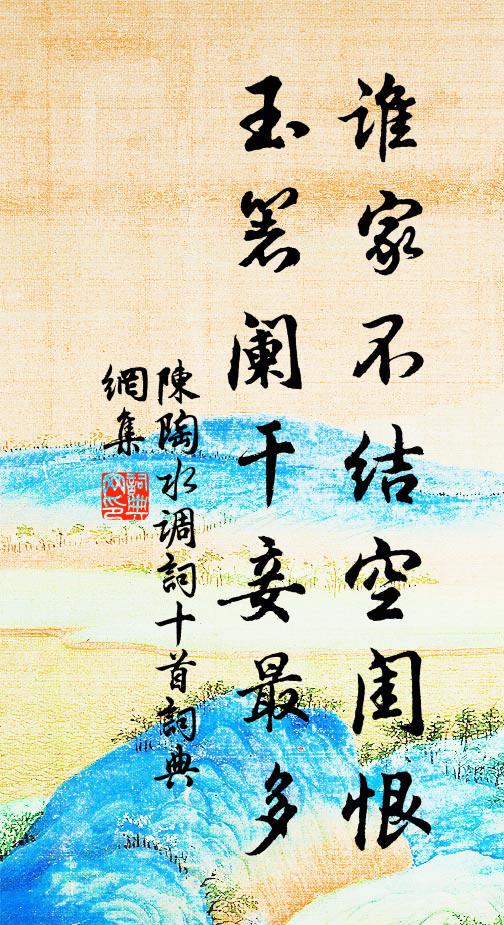 谁家不结空闺恨
玉箸阑干妾最多
陳陶水调詞十首詞典
網集
詞典